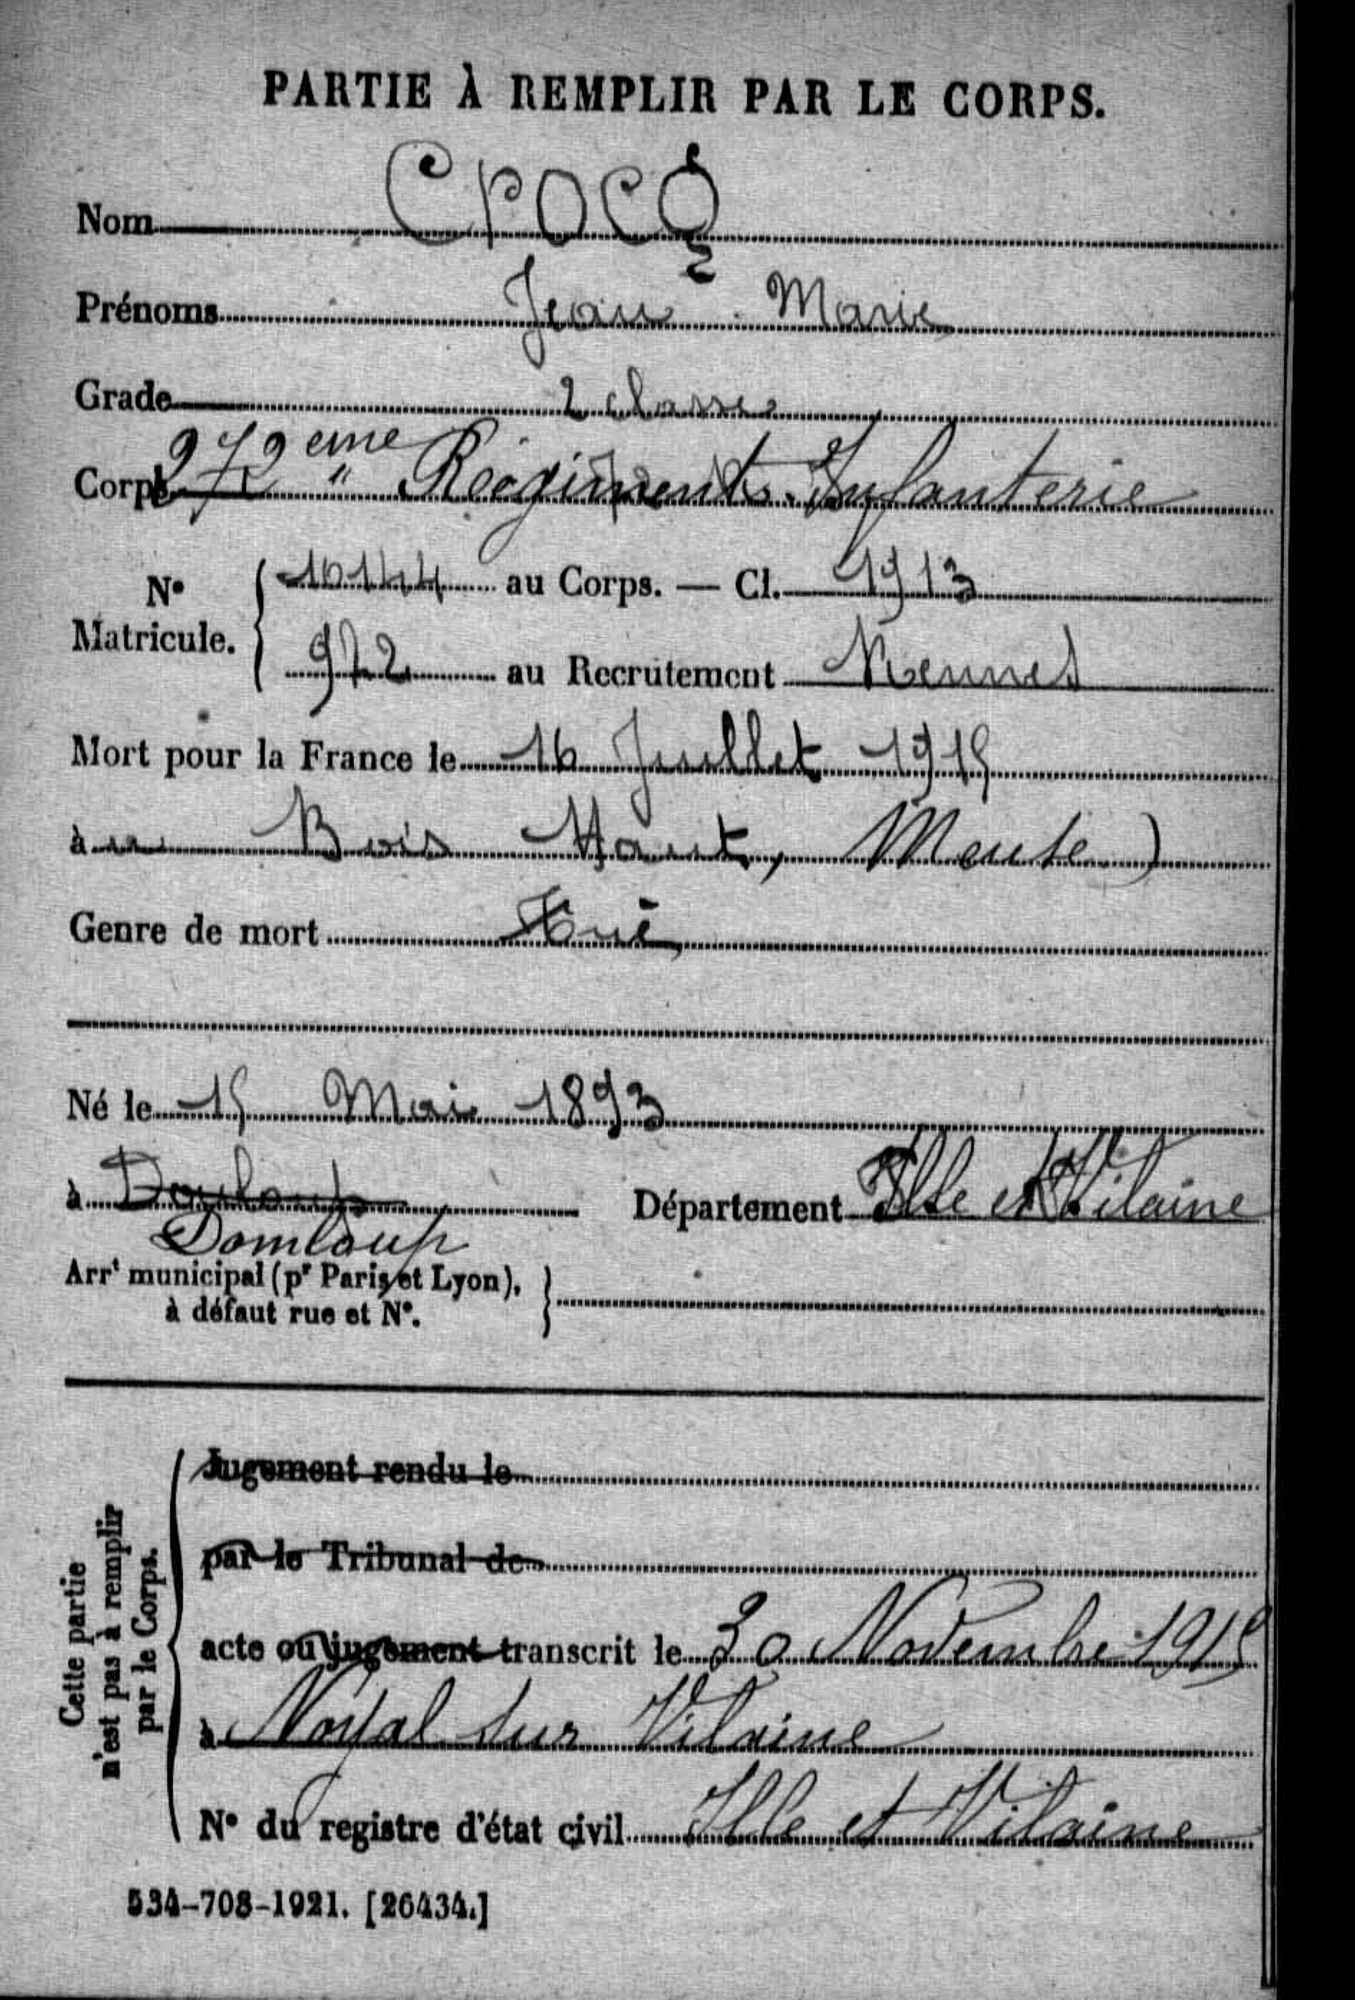 PARTIE À REMPLIR PAR LE CORPS.
Nom CROCQ
Prénoms Jean Marie
Grade 2 classe
Corps 272 eme " Régiment Infanterie
N° Matricule. 10144 au Corps. — Cl. 1913
972 au Recrutement Rennes
Mort pour la France le 16 Juillet 1915
à au Bois Haut, Meuse)
Genre de mort Tué
Né le 15 Mai 1893
à Douloup Département Ille et Vilaine
Domloup
Arr^t municipal (p^r Paris et Lyon),
à défaut rue et N°.
Cette partie
n'est pas à remplir
par le Corps.
Jugement rendu le
par le Tribunal de
acte ou jugement transcrit le 30 Novembre 1915
à Noyal sur Vilaine
N° du registre d'état civil Ille et Vilaine
534-708-1921. [26434.]